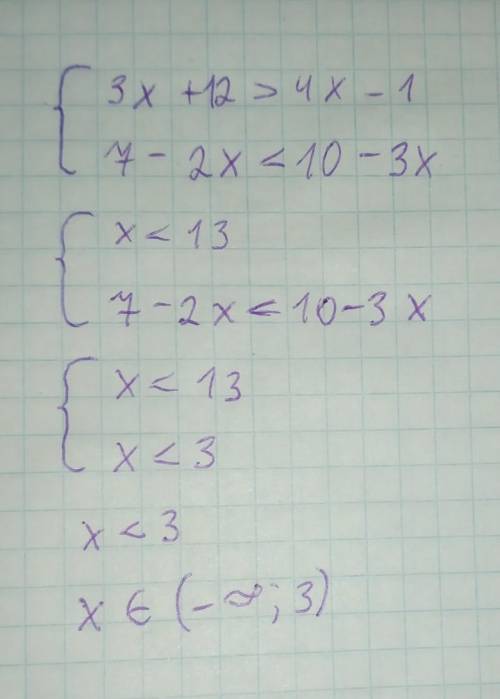 3x + 12 > 4x - 1
7 - 2x < 10 - 3x
x < 13
7 - 2x < 10 - 3x
x < 13
x < 3
x < 3
x ∈ (-∞; 3)